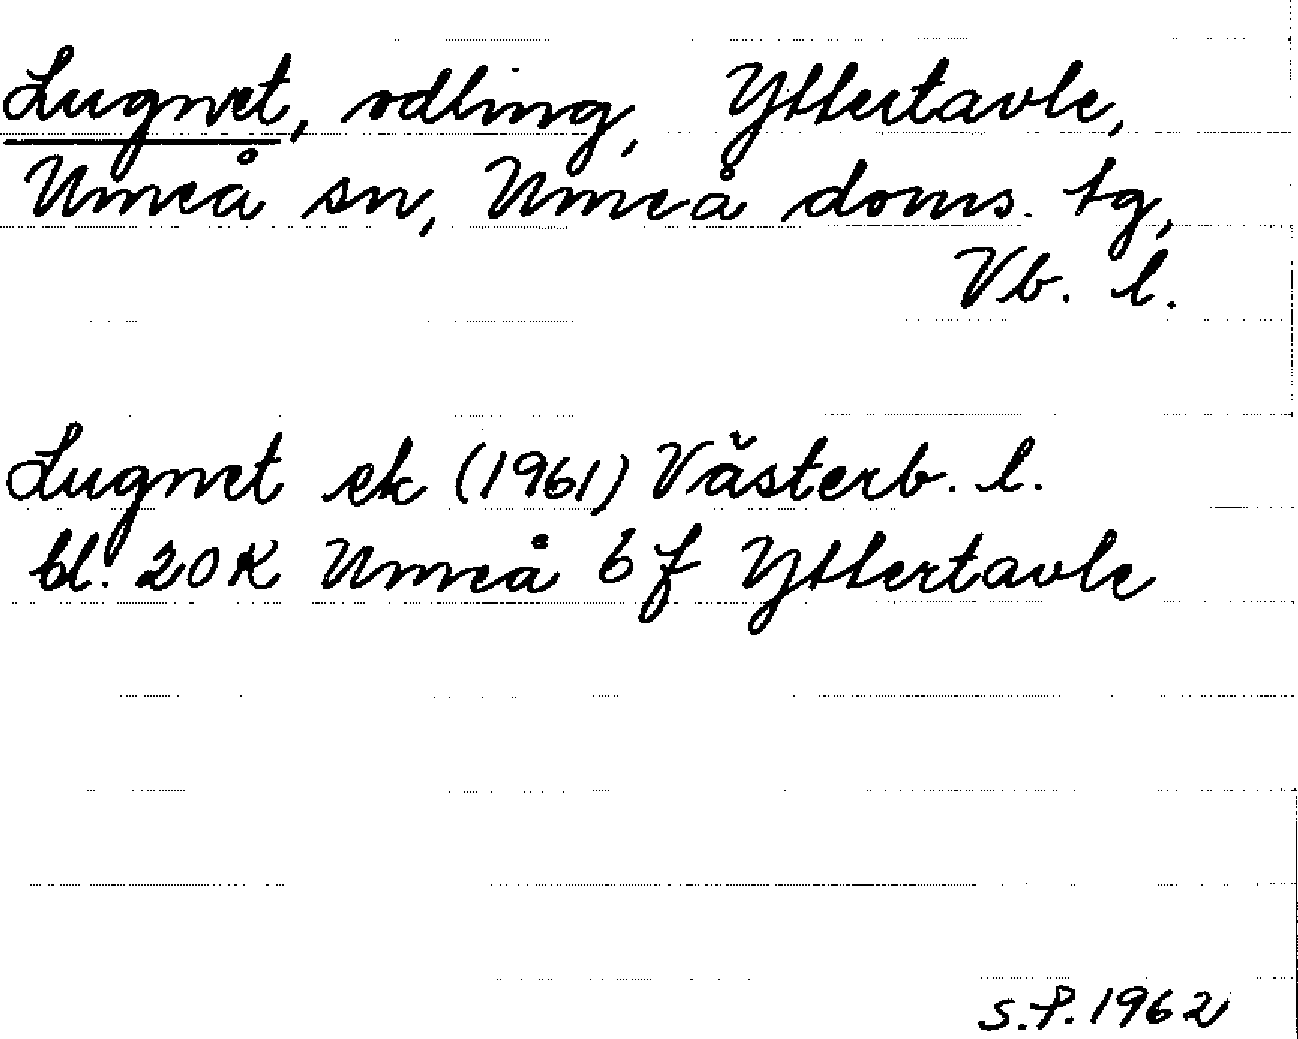 Lugnet, odling, Yttertavle,
Umeå sn, Umeå doms. tg,
Vb. l.
Lugnet ek (1961) Västerb. l.
bl. 20K Umeå 6f Yttertavle
S.P. 1962